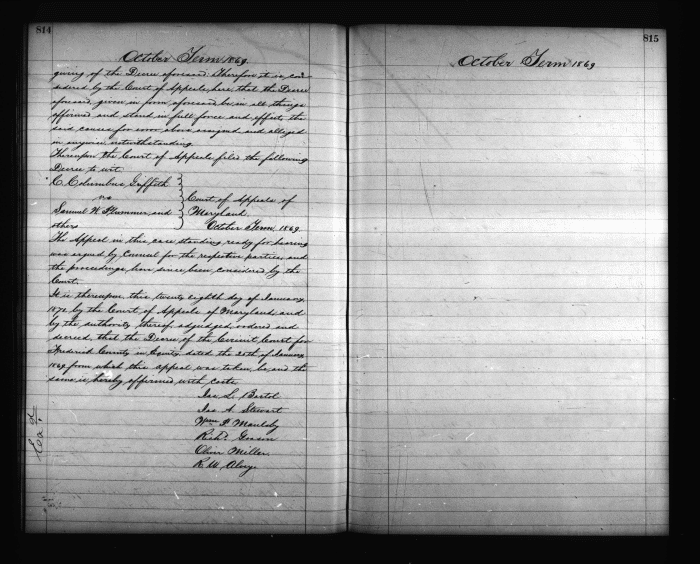 814
October Term 1869.
giving of the Decree aforesaid. Therefore it is con-
sidered by the Court of Appeals here, that the Decree
aforesaid, given in form aforesaid be in all things
affirmed and stand in full force and effect, the
said causes for error above assigned and alleged
in anywise notwithstanding.
Thereupon the Court of Appeals filed the following
Decree to wit
C. Columbus Griffith
vs
Samuel W. Plummer, and
others
Court of Appeals of
Maryland.
October Term, 1869.
The Appeal in this case standing ready for hearing
was argued by Counsel for the respective parties, and
the proceedings have since been considered by the
Court.
It is thereupon this twenty eighth day of January
1870, by the Court of Appeals of Maryland, and
by the authority thereof adjudged, ordered and
decreed, that the Decree of the Circuit Court for
Frederick County in Equity dated the 20th of January
1869 from which this appeal was taken, be, and the
same is, hereby affirmed with costs.
Jas L. Bartol
Jas A. Stewart
Wm P. Maulsby
Richd. Grason
Oliver Miller
R. H. Alvey
Ex. d
815
October Term 1869